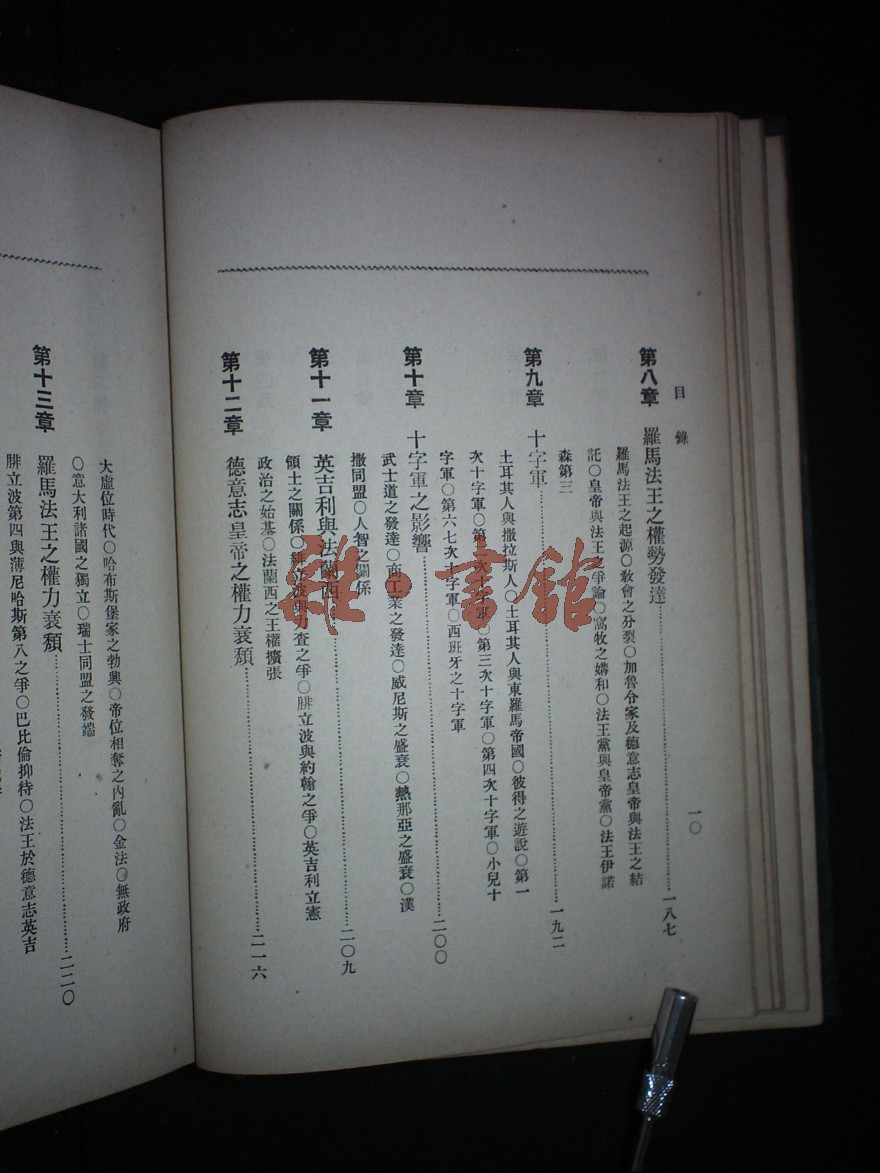 目錄
一〇
第八章 羅馬法王之權勢發達……一八七
羅馬法王之起源〇敎會之分裂〇加魯令家及德意志皇帝與法王之結
託〇皇帝與法王之爭論〇窩牧之媾和〇法王黨與皇帝黨〇法王伊諾
森第三
第九章 十字軍……一九二
土耳其人與撒拉斯人〇土耳其人與東羅馬帝國〇彼得之遊說〇第一
次十字軍〇第二次十字軍〇第三次十字軍〇第四次十字軍〇小兒十
字軍〇第六七次十字軍〇西班牙之十字軍
第十章 十字軍之影響……二〇〇
武士道之發達〇商工業之發達〇威尼斯之盛衰〇熱那亞之盛衰〇漢
撒同盟〇人智之關係
第十一章 英吉利與法蘭西……二〇九
領土之關係〇腓立波與力查之爭〇腓立波與約翰之爭〇英吉利立憲
政治之始基〇法蘭西之王權擴張
第十二章 德意志皇帝之權力衰頹……二一六
大虛位時代〇哈布斯堡家之勃興〇帝位相奪之內亂〇金法〇無政府
〇意大利諸國之獨立〇瑞士同盟之發端
第十三章 羅馬法王之權力衰頹……二二〇
腓立波第四與薄尼哈斯第八之爭〇巴比倫抑待〇法王於德意志英吉
雜·書館